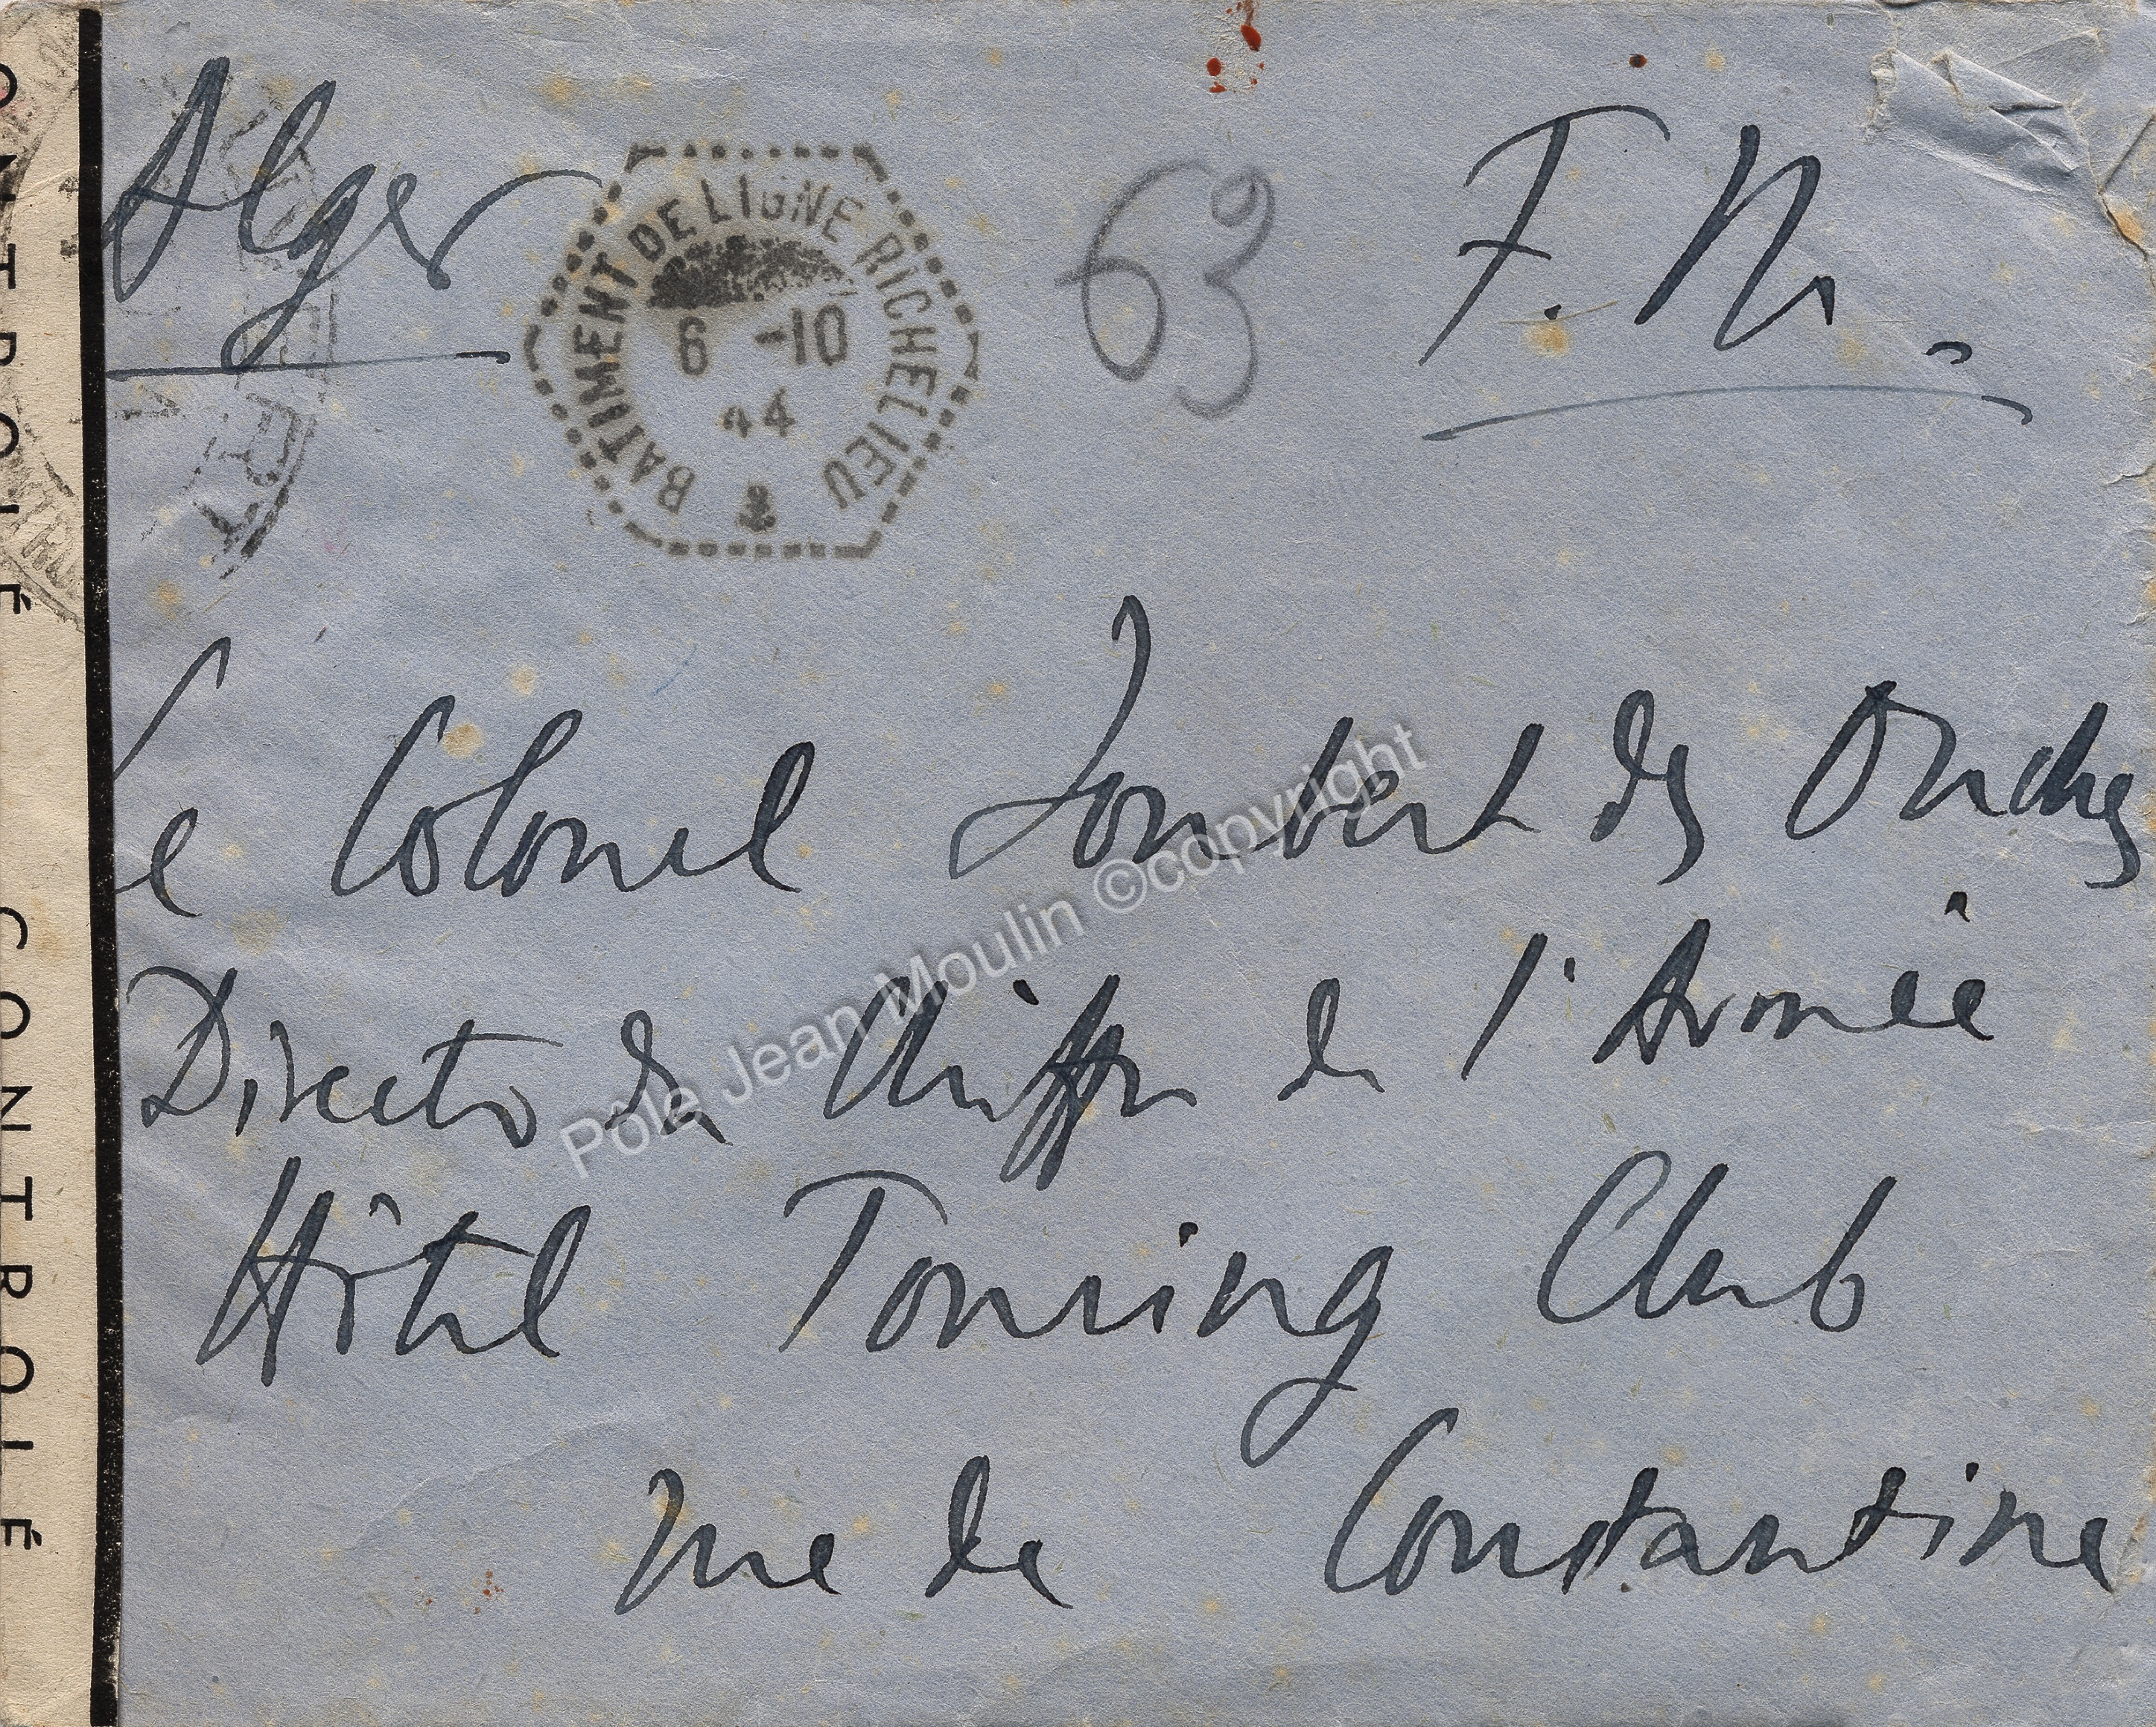 Alger
BATIMENT DE LIGNE RICHELIEU
6 -10
44
63
F. M.
Le Colonel Joubert des Ouches
Directn du Chiffre de l'Armée
Hôtel Touring Club
rue de Constantine
CONTROLÉ CONTROLÉ
Pôle Jean Moulin ©copyright